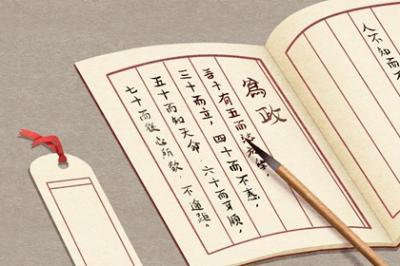 人不知而不
為政
吾十有五而學，
三十而立，四十而不惑，
五十而知天命，六十而耳順，
七十而從心所欲，不逾